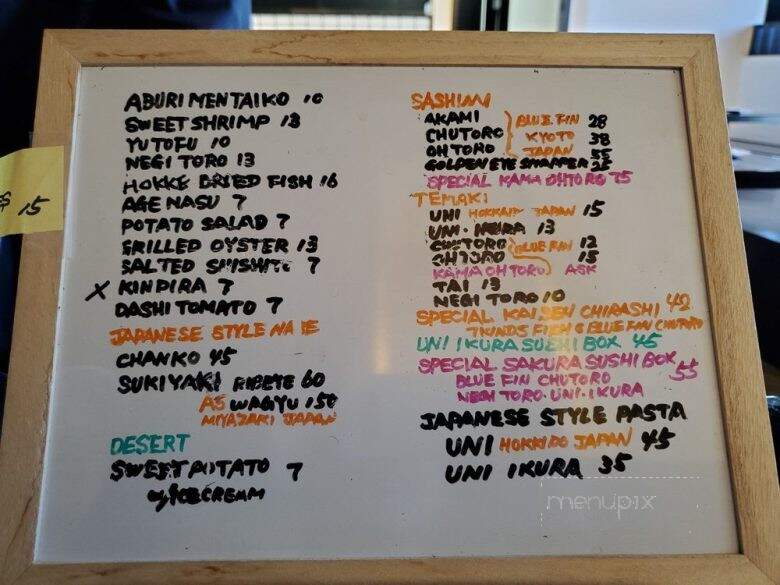 $ 15
ABURI MENTAIKO 10
SWEET SHRIMP 13
YUTOFU 10
NEGI TORO 13
HOKKE DRIED FISH 16
AGE NASU 7
POTATO SALAD 7
GRILLED OYSTER 13
SALTED SHISHITO 7
X KINPIRA 7
DASHI TOMATO 7
JAPANESE STYLE
CHANKO 45
SUKIYAKI RIBEYE 60
A5 WAGYU 150
MIYAZAKI JAPAN
DESERT
SWEET POTATO 7
W/ ICECREAM
SASHIMI
AKAMI BLUE FIN 28
CHUTORO KYOTO 38
OHTORO JAPAN 55
GOLDENEYE SNAPPER
SPECIAL KAMA OHTORO 75
TEMAKI
UNI HOKKAIDO JAPAN 15
UNI・IKURA 13
CHUTORO BLUE FIN 12
OHTORO 15
KAMA OHTORO ASK
TAI 13
NEGI TORO 10
SPECIAL KAISEN CHIRASHI 42
7KINDS FISH & BLUE FIN CHUTORO
UNI IKURA SUSHI BOX 45
SPECIAL SAKURA SUSHI BOX 55
BLUE FIN CHUTORO
NEGI TORO・UNI・IKURA
JAPANESE STYLE PASTA
UNI HOKKIDO JAPAN 45
UNI IKURA 35
menupix